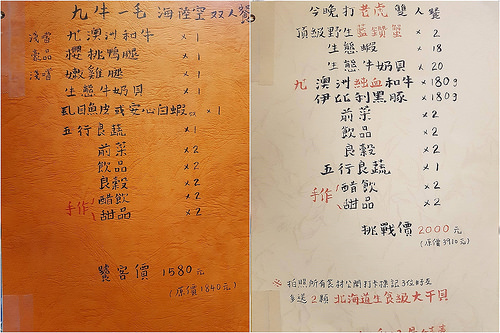 九牛一毛 海陸空双人餐
淺嘗 九 澳洲和牛 ×1
櫻桃鴨腿 ×1
淺嚐 嫩雞腿 ×1
生態牛奶貝 ×1
虱目魚皮或安心白蝦 ×1
五行良蔬 ×1
前菜 ×2
飲品 ×2
良穀 ×2
手作 醋飲 ×2
甜品 ×2
饕客價 1580元
(原價1840元)
今晚打老虎 雙人餐
頂級野生藍鑽蟹 ×2
生態蝦 ×18
野生 生態牛奶貝 ×20
九 澳洲純血和牛 ×180g
伊比利黑豚 ×180g
前菜 ×2
飲品 ×2
良穀 ×2
五行良蔬 ×1
手作 醋飲 ×2
甜品 ×2
挑戰價 2000元
(原價3910元)
※ 拍照所有食材公開打卡標記3位好友
多送2顆 北海道生食級大干貝